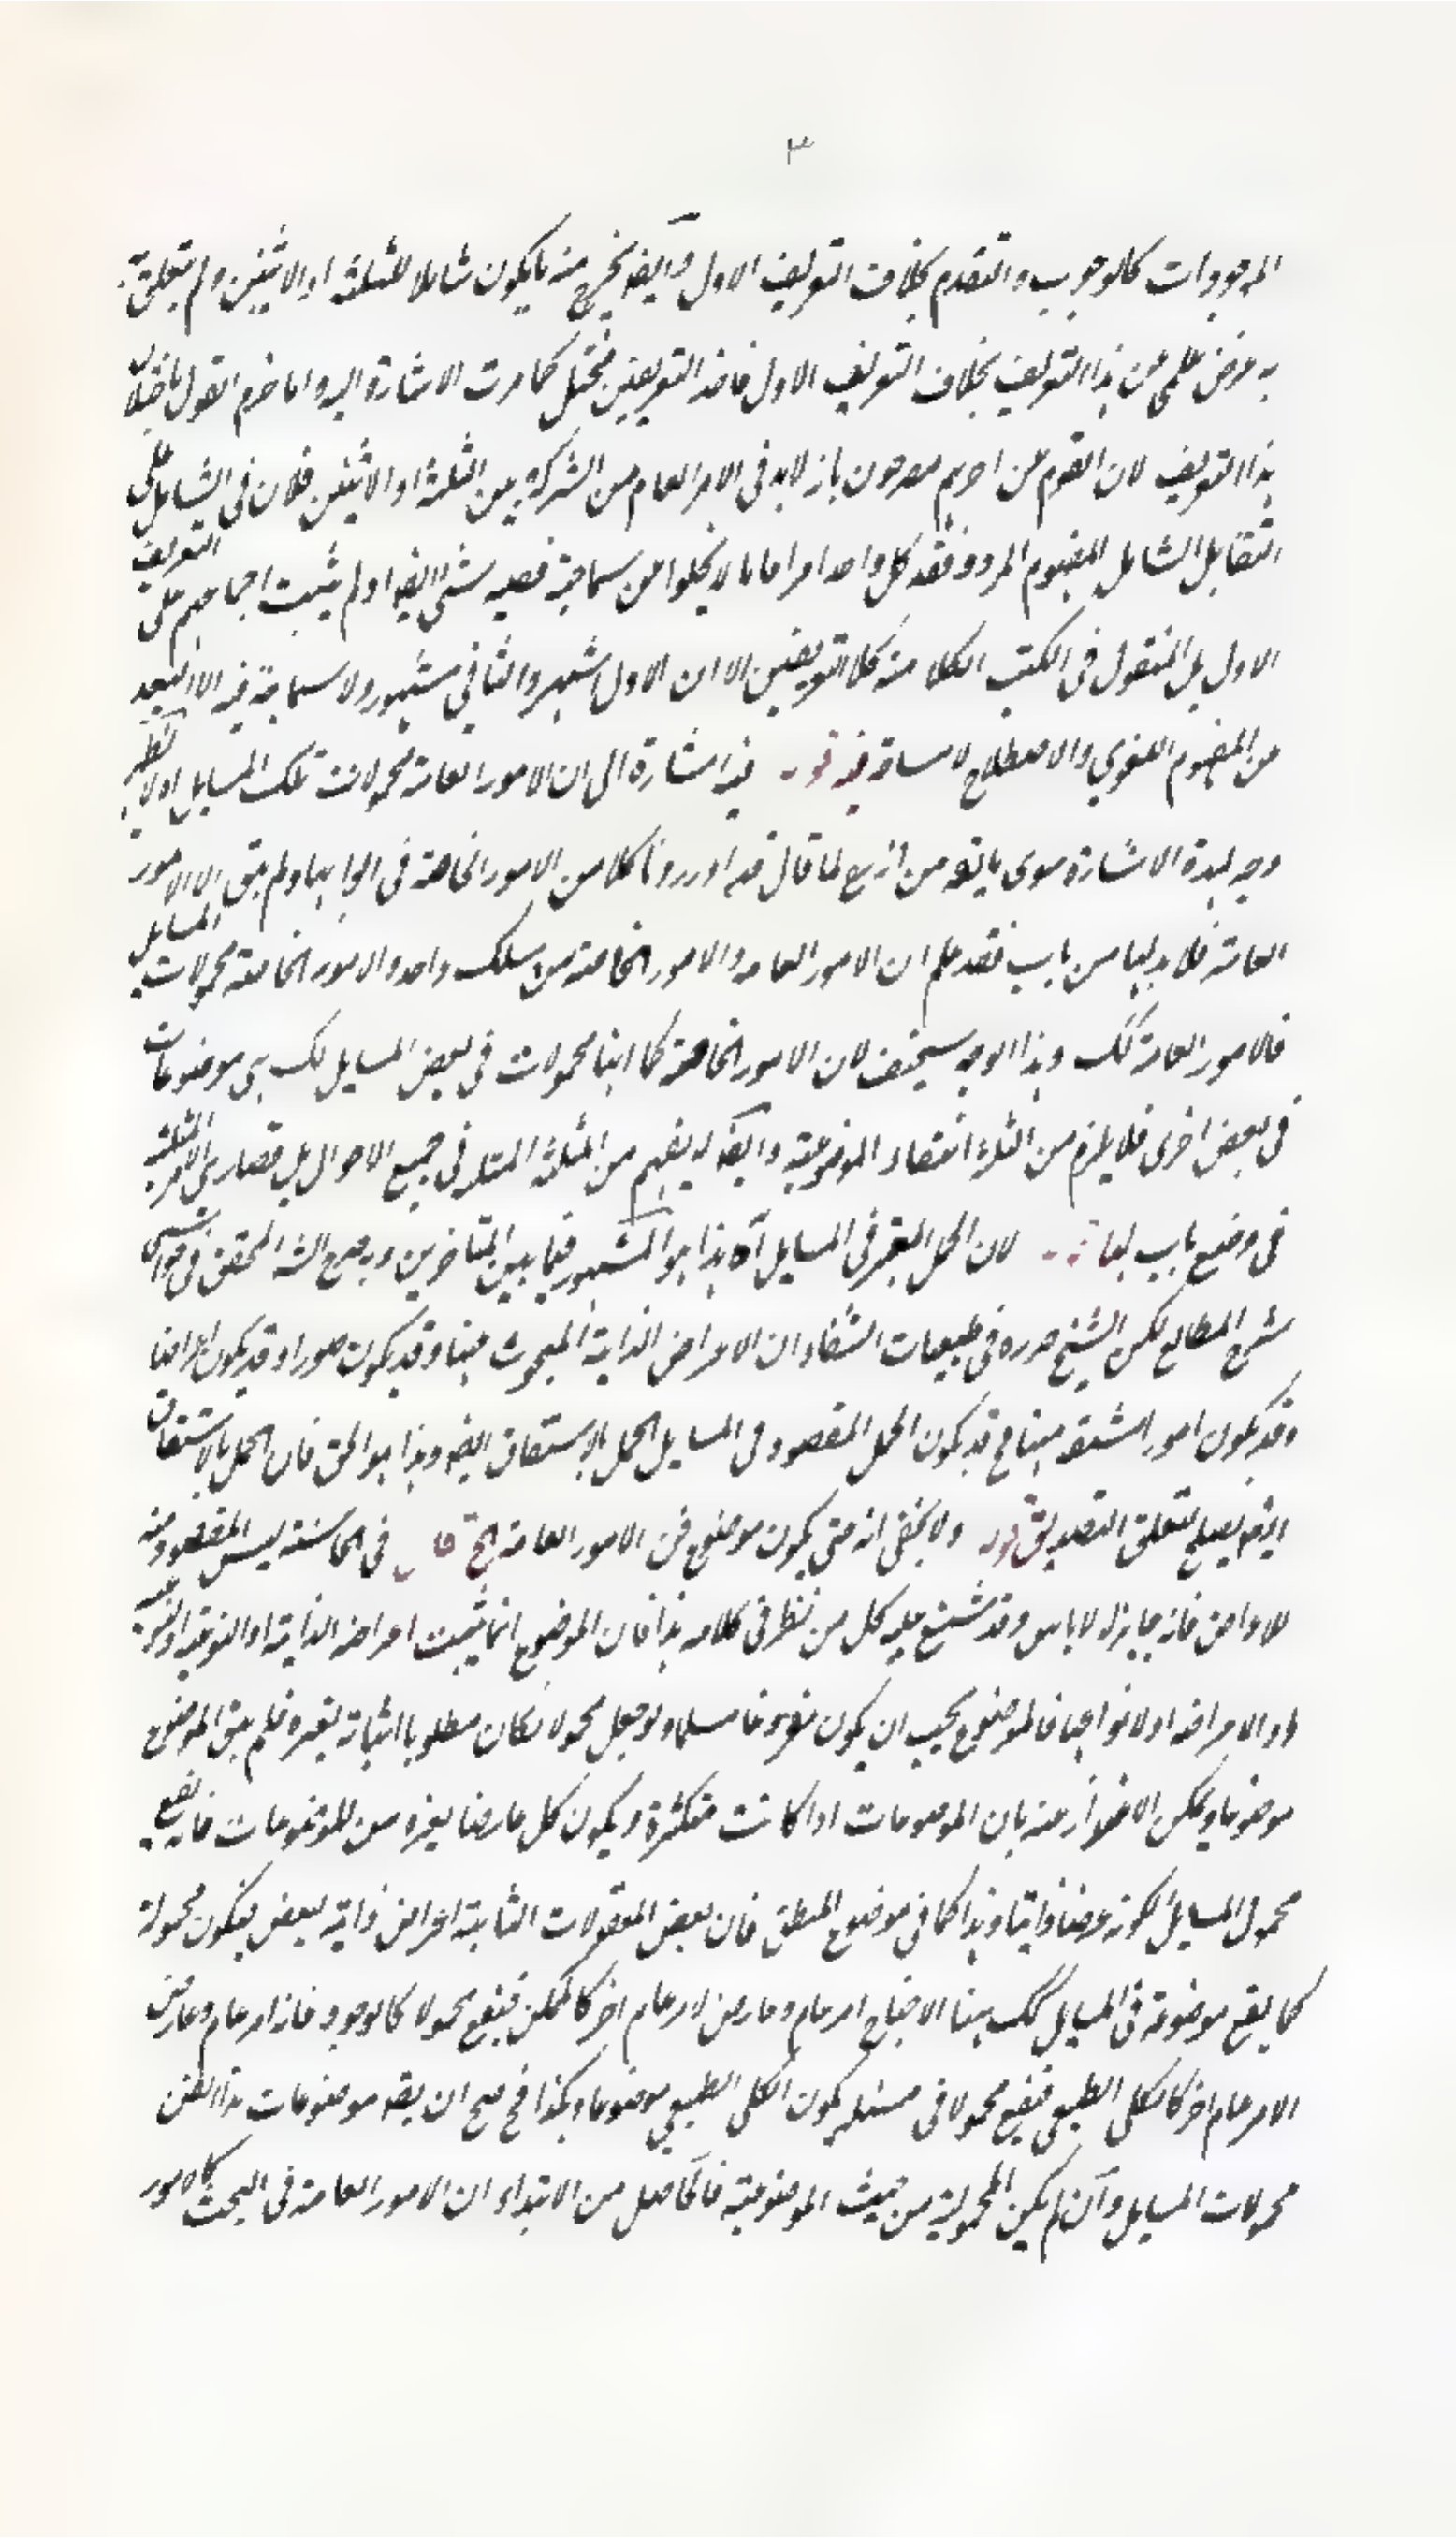 ٣
الموجودات كالوجوب والتقدم بخلاف التعريف الاول وايضا يخرج منه ما يكون شاملا للثلثة او الاثنين ولم يتعلق
به غرض علمى من هذا التعريف بخلاف التعريف الاول فاخذ التعريفين مختل كما مرت الاشارة اليه واما خرم القول باختلال
هذا التعريف لان القوم عن اخرهم مصرحون بانه لابد فى الامر العام من الشركة بين الثلثة او الاثنين فلان فى الشامل على
التقابل الشامل المفهوم المردد فقد كل واحد امرا عاما لا يخلوا عن سماجة ففيه شئ ايضا اذ لم يثبت اجماعهم على التعريف
الاول بل المنقول فى الكتب الكلامية كلا التعريفين الا ان الاول اشهر والثانى مشهور ولا سماجة فيه الا البعد
من المفهوم اللغوي والاصطلاح لا مساقة فيه قوله فيه اشارة الى ان الامور العامة محمولات تلك المسايل اه لا يظهر
وجه لهذه الاشارة سوى ما يتوهم من انه لما قال قد اوردنا كلا من الامور الخاصة فى ابوابها ولم يبق الا الامور
العامة فلابد لها من باب فقد علم ان الامور العامة والامور الخاصة من سلك واحد والامور الخاصة محمولات المسايل
فالامور العامة كك وهذا الوجه سخيف لان الامور الخاصة كما انها محمولات فى بعض المسايل كك هى موضوعات
فى بعض اخرى فلا يلزم من الثلثة انتفاء الموضوعية وايضا لا يفهم من المثلية المثلية فى جميع الاحوال بل قصارى الامر المثلية
فى وضع باب لها قوله لان الحمل المعتبر فى المسايل آه هذا هو المشهور فيما بين المتاخرين وبه صرح الش المحقق فى حواشى
شرح المطالع لكن الشيخ صرح فى طبيعيات الشفاء ان الاعراض الذاتية المبحوث عنها قد يكون صورا وقد يكون اعراضا
وقد يكون امورا مشتقة منها فح قد يكون الحمل المقصود فى المسايل الحمل بالاشتقاق ايضا وهذا هو الحق فان الحمل بالاشتقاق
ايضا يصلح لتعلق التصديق قوله ولا يخفى انه حتى يكون موضوع فن الامور العامة الخ قال فى الحاشية ليس المقصود منه
موضوعا ويمكن الاعتذار عنه بان الموضوعات اذا كانت متكثرة ويكون كل عارضا لغيره من الموضوعات فانه يقع
محمول المسايل لكونه عرضا ذاتيا وهذا كما فى موضوع المنطق فان بعض المعقولات الثانية اعراض ذاتية لبعض فيكون محمولة
كما يقع موضوعة فى المسايل كك هنا الاحتياج امر عام وعارض لامر عام اخر كالممكن فيقع محمولا كالوجود فانه امر عام وعارض
لامر عام اخر كالكلى الطبيعى فيقع محمولا فى مسئلة يكون الكلى الطبيعى موضوعا وهكذا فح صح ان يقع موضوعات هذا الفن
محمولات المسايل وان لم يكن المحمولية من حيث الموضوعية فالحاصل من الابتداء ان الامور العامة فى البحث كالامور